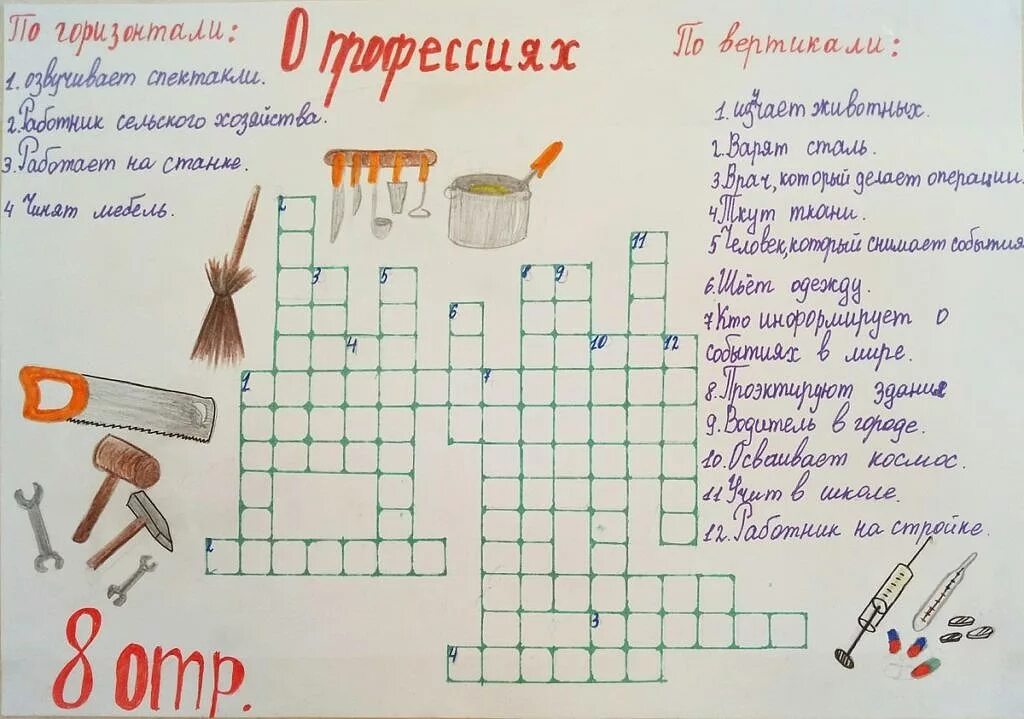 О профессиях
По горизонтали:
1. озвучивает спектакли.
2. Работник сельского хозяйства.
3. Работает на станке.
4 Чинят мебель.
По вертикали:
1. изучает животных.
2. Варят сталь.
3. Врач, который делает операции.
4 Ткут ткани.
5 Человек, который снимает события
6. Шьёт одежду.
7 Кто информирует о
событиях в мире.
8. Проэктируют здания
9. Водитель в городе.
10. Осваивает космос.
11 Учит в школе.
12. Работник на стройке.
2
11
3 5 8 9
6
4 10 12
1 7
2
3
4
8 отр.